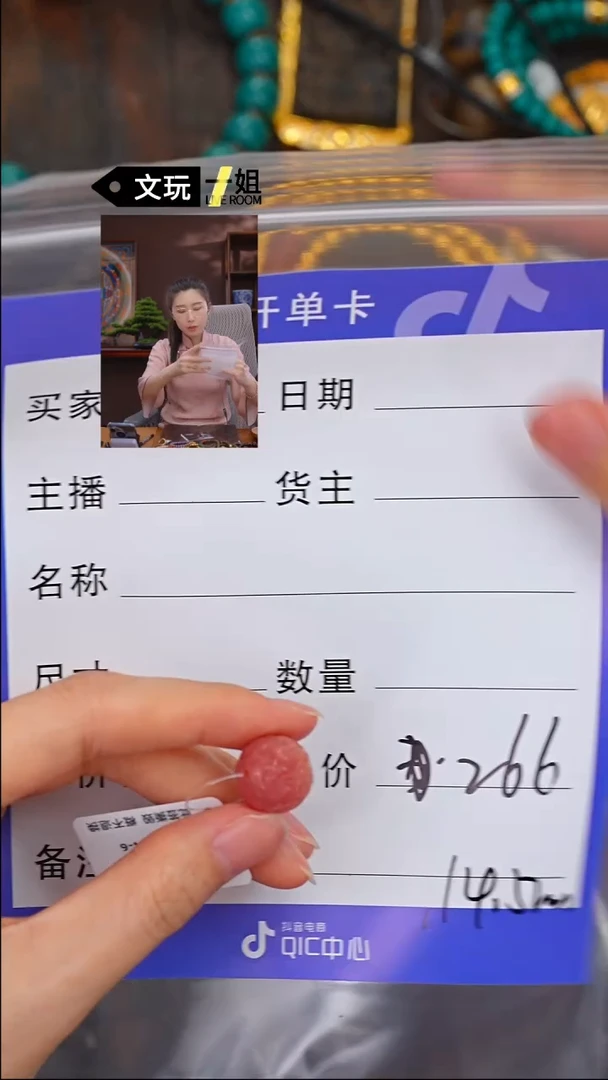 文玩一姐
LIVE ROOM
开单卡
买家 日期
主播 货主
名称
尺寸 数量
价 价 266
备注 14.5mm
此签撕毁 概不退换
抖音电商
QIC中心